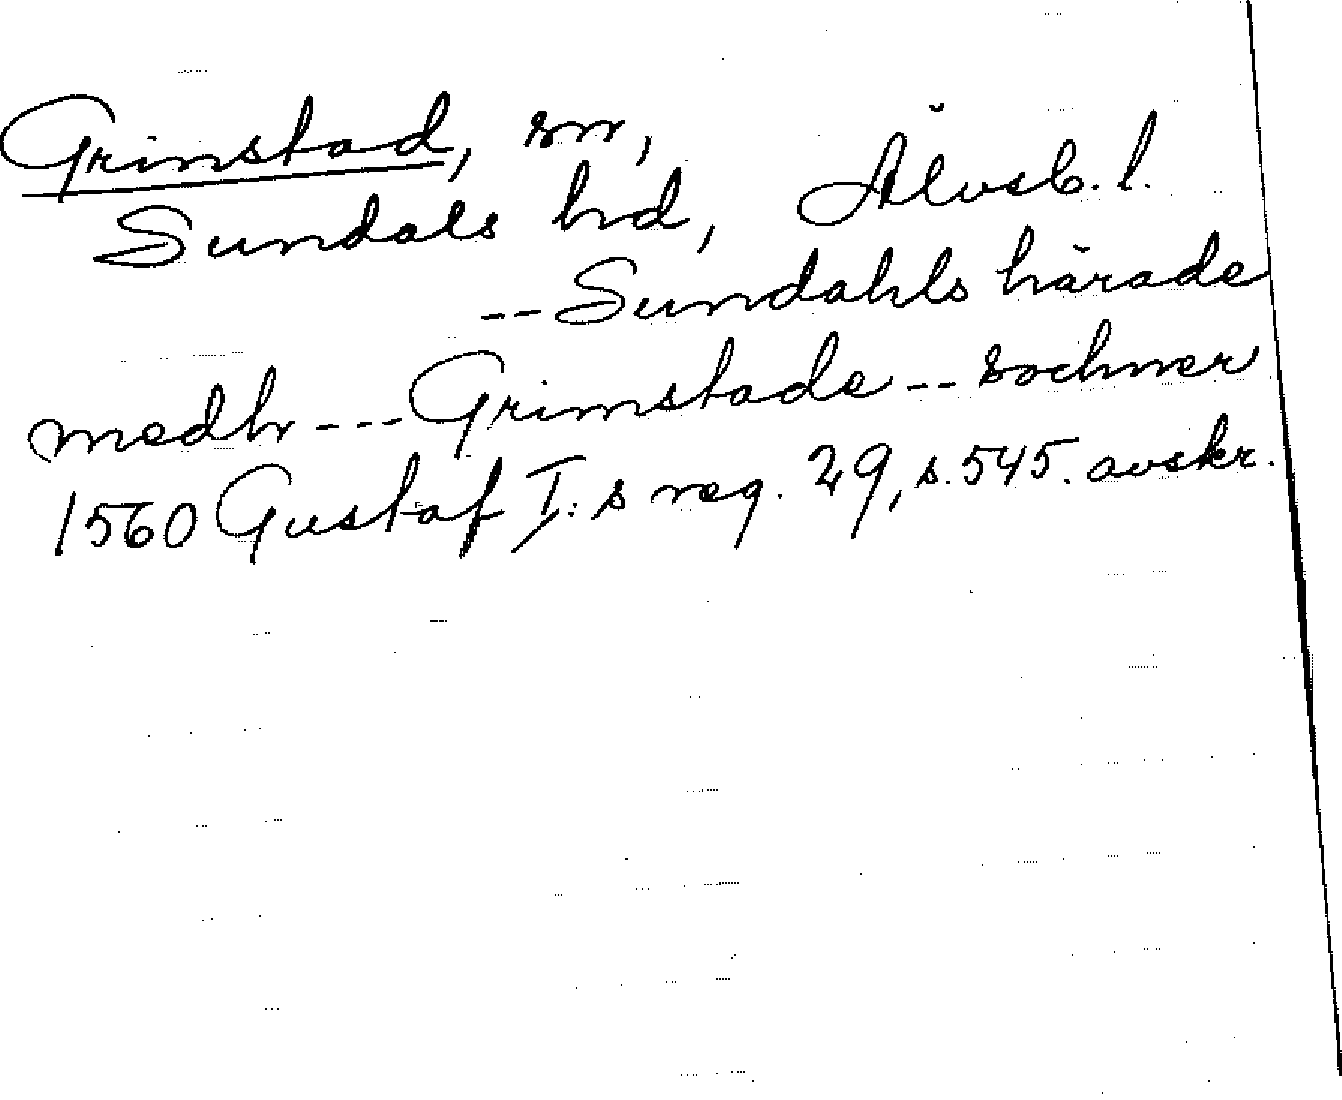 Grinstad, sn,
Sundals hd, Älvsb. l.
-- Sundahls härade
medhr --- Grimstade -- sochner
1560 Gustaf I:s reg. 29, s. 545. avskr.